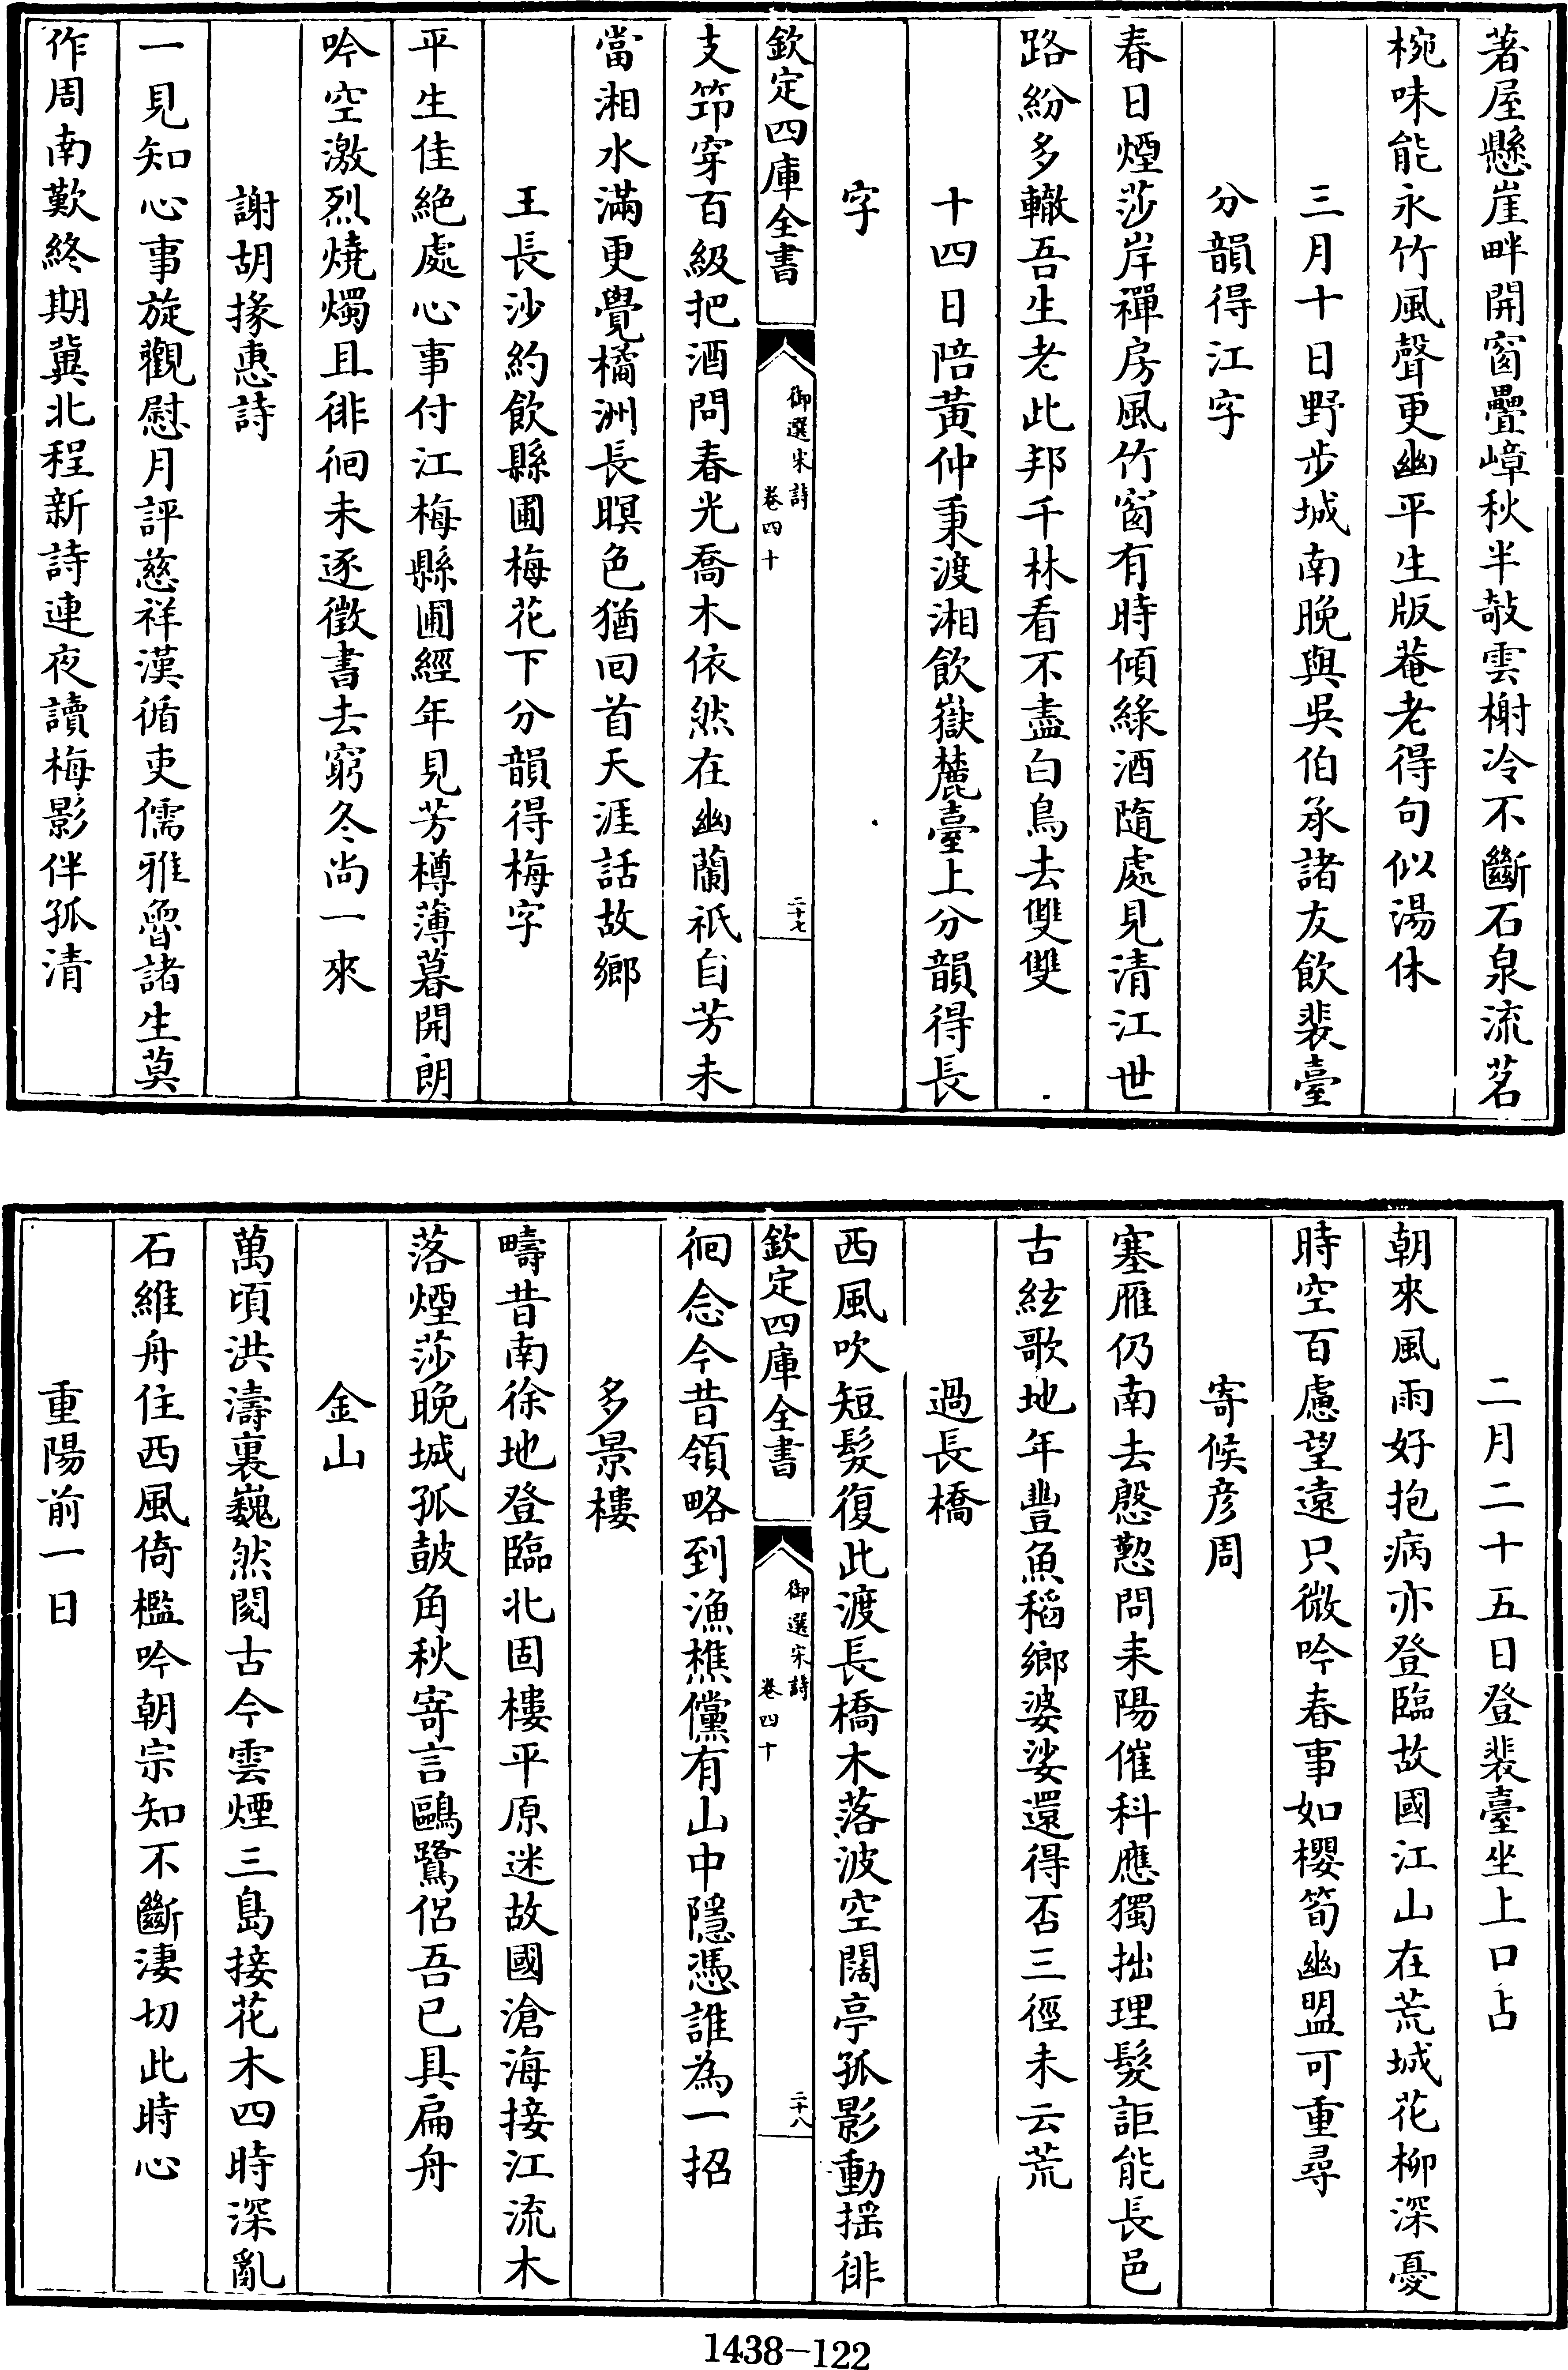 著屋懸崖畔開窗疊嶂秋半敧雲榭冷不斷石泉流茗
椀味能永竹風聲更幽平生版菴老得句似湯休
三月十日野步城南晚與吳伯承諸友飲裴臺
分韻得江字
春日煙莎岸禪房風竹窗有時傾綠酒隨處見清江世
路紛多轍吾生老此邦千林看不盡白鳥去雙雙
十四日陪黃仲秉渡湘飲嶽麓臺上分韻得長
字
欽定四庫全書
御選宋詩
卷四十
二十七
支筇穿百級把酒問春光喬木依然在幽蘭祇自芳未
當湘水滿更覺橘洲長暝色猶回首天涯話故鄉
王長沙約飲縣圃梅花下分韻得梅字
平生佳絕處心事付江梅縣圃經年見芳樽薄暮開朗
吟空激烈燒燭且徘徊未逐徵書去窮冬尚一來
謝胡掾惠詩
一見知心事旋觀慰月評慈祥漢循吏儒雅魯諸生莫
作周南歎終期冀北程新詩連夜讀梅影伴孤清
二月二十五日登裴臺坐上口占
朝來風雨好抱病亦登臨故國江山在荒城花柳深憂
時空百慮望遠只微吟春事如櫻筍幽盟可重尋
寄候彥周
塞雁仍南去慇懃問耒陽催科應獨拙理髮詎能長邑
古絃歌地年豐魚稻鄉婆娑還得否三徑未云荒
過長橋
西風吹短髮復此渡長橋木落波空闊亭孤影動搖徘
欽定四庫全書
御選宋詩
卷四十
二十八
徊念今昔領略到漁樵儻有山中隱憑誰為一招
多景樓
疇昔南徐地登臨北固樓平原迷故國滄海接江流木
落煙莎晚城孤鼓角秋寄言鷗鷺侶吾已具扁舟
金山
萬頃洪濤裏巍然閱古今雲煙三島接花木四時深亂
石維舟住西風倚檻吟朝宗知不斷淒切此時心
重陽前一日
1438-122